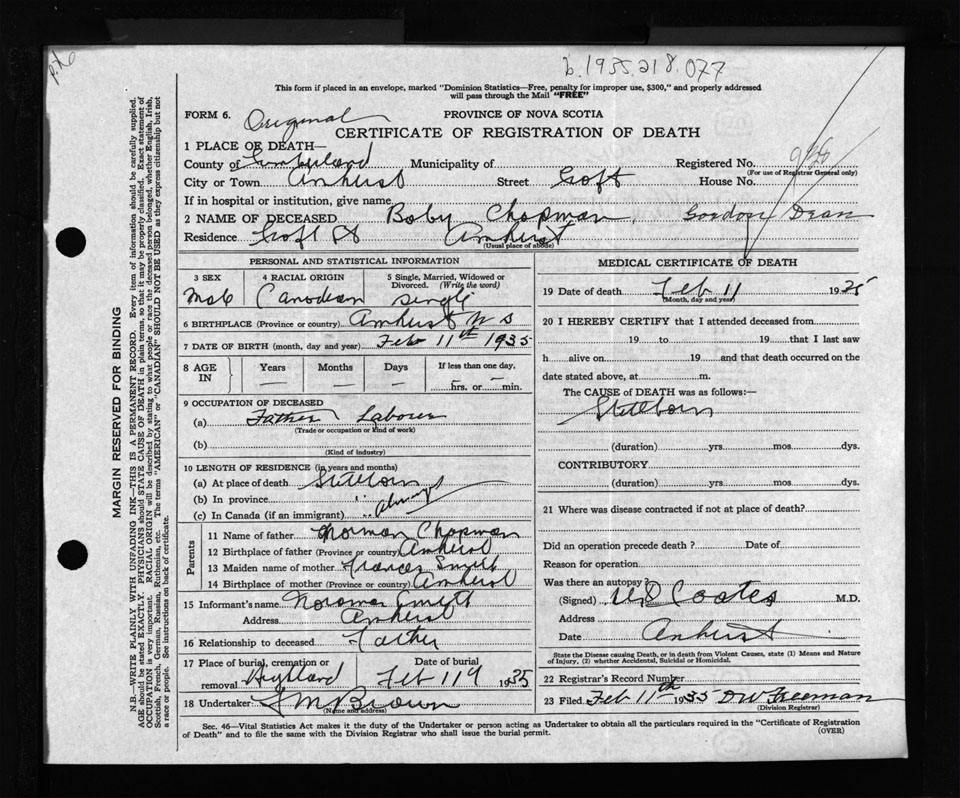 b. 1935.218.077
This form if placed in an envelope, marked "Dominion Statistics—Free, penalty for improper use, $300," and properly addressed
will pass through the Mail "FREE"
FORM 6. Original PROVINCE OF NOVA SCOTIA
CERTIFICATE OF REGISTRATION OF DEATH
1 PLACE OF DEATH—
County of Cumberland Municipality of Registered No.
(For use of Registrar General only)
City or Town Amherst Street Croft House No.
If in hospital or institution, give name
2 NAME OF DECEASED Baby Chapman, Gordon Dean
Residence Croft St Amherst
(Usual place of abode)
MARGIN RESERVED FOR BINDING
N.B.—WRITE PLAINLY WITH UNFADING INK—THIS IS A PERMANENT RECORD. Every item of information should be carefully supplied.
AGE should be stated EXACTLY. PHYSICIANS should STATE CAUSE OF DEATH in plain terms, so that it may be properly classified. Exact statement of
OCCUPATION is very important. RACIAL ORIGIN will be described by stating to what people or race the deceased person belonged, whether English, Irish,
Scottish, French, German, Russian, Ruthenian, etc. The terms "AMERICAN" or "CANADIAN" SHOULD NOT BE USED as they express citizenship but not
a race or people. See instructions on back of certificate.
PERSONAL AND STATISTICAL INFORMATION
3 SEX 4 RACIAL ORIGIN 5 Single, Married, Widowed or
Divorced. (Write the word)
Male Canadian Single
6 BIRTHPLACE (Province or country) Amherst N S
7 DATE OF BIRTH (month, day and year) Feb 11th 1935
8 AGE IN Years Months Days If less than one day,
— — — hrs. or — min.
9 OCCUPATION OF DECEASED
(a) Father Laborer
(Trade or occupation or kind of work)
(b)
(Kind of industry)
10 LENGTH OF RESIDENCE (in years and months)
(a) At place of death Stillborn
(b) In province "
(c) In Canada (if an immigrant) " always
Parents
11 Name of father Norman Chapman
12 Birthplace of father (Province or country) Amherst
13 Maiden name of mother Frances Smith
14 Birthplace of mother (Province or country) Amherst
15 Informant's name Norman Smith
Address Amherst
16 Relationship to deceased Father
17 Place of burial, cremation or removal Highland Date of burial Feb 11th 1935
18 Undertaker J M Brown
(Name and address)
MEDICAL CERTIFICATE OF DEATH
19 Date of death Feb 11 1935
(Month, day and year)
20 I HEREBY CERTIFY that I attended deceased from
19 to 19 that I last saw
h alive on 19 and that death occurred on
date stated above, at m.
The CAUSE OF DEATH was as follows:—
Stillborn
(duration) yrs. mos. dys.
CONTRIBUTORY
(duration) yrs. mos. dys.
21 Where was disease contracted if not at place of death?
Did an operation precede death? Date of
Reason for operation
Was there an autopsy?
(Signed) Coates M.D.
Address
Date Amherst
State the Disease causing Death, or in death from Violent Causes, state (1) Means and Nature
of Injury, (2) whether Accidental, Suicidal or Homicidal.
22 Registrar's Record Number
23 Filed Feb 11th 1935 DW Freeman
(Division Registrar)
Sec. 46—Vital Statistics Act makes it the duty of the Undertaker or person acting as Undertaker to obtain all the particulars required in the "Certificate of Registration
of Death" and to file the same with the Division Registrar who shall issue the burial permit.
(OVER)